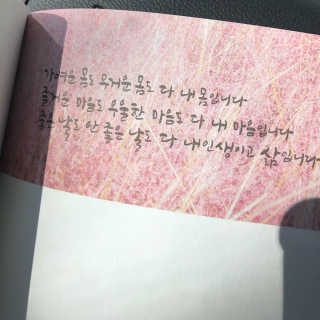 가벼운 몸도 무거운 몸도 다 내 몸입니다
즐거운 마음도 우울한 마음도 다 내 마음입니다
좋은 날도 안 좋은 날도 다 내 인생이고 삶입니다